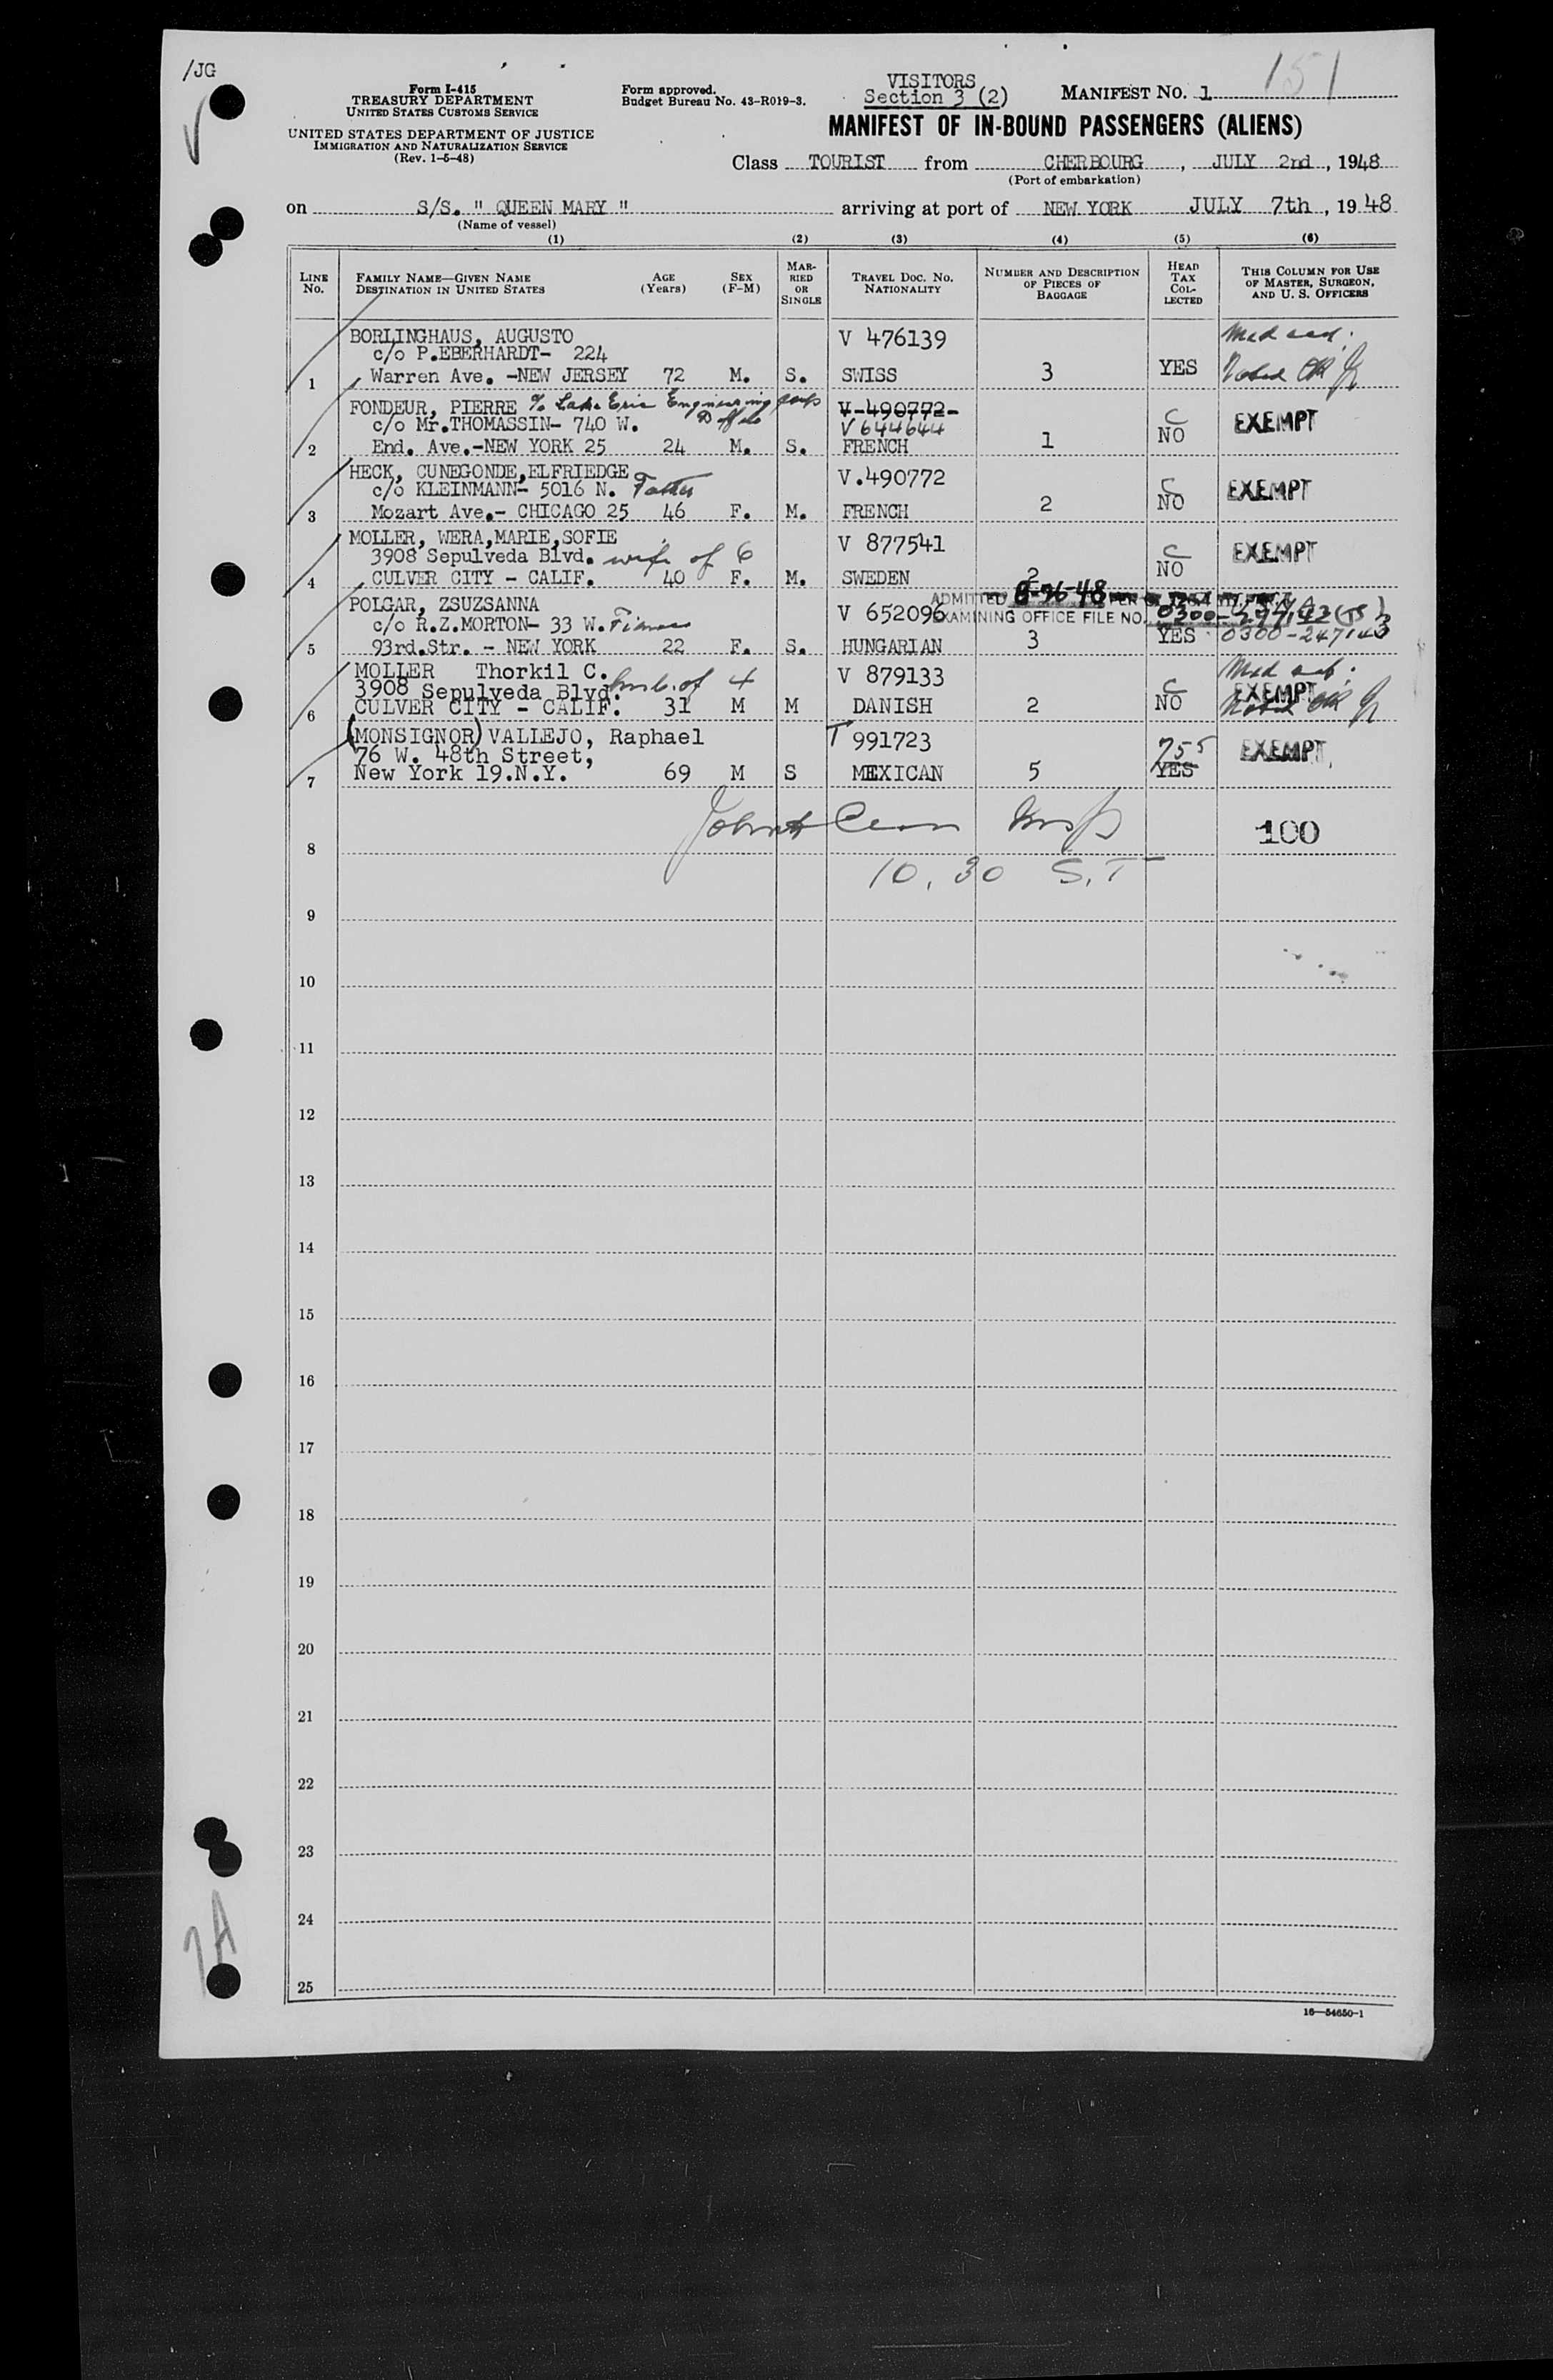 /JG
Form I-415
TREASURY DEPARTMENT
UNITED STATES CUSTOMS SERVICE
UNITED STATES DEPARTMENT OF JUSTICE
IMMIGRATION AND NATURALIZATION SERVICE
(Rev. 1-5-48)
Form approved.
Budget Bureau No. 43-R019-3.
VISITORS
Section 3 (2)
MANIFEST NO. 1
151
MANIFEST OF IN-BOUND PASSENGERS (ALIENS)
Class TOURIST from CHERBOURG, JULY 2nd, 1948
(Port of embarkation)
on S/S. " QUEEN MARY " arriving at port of NEW YORK JULY 7th, 1948
(Name of vessel)
(1) (2) (3) (4) (5) (6)
LINE NO.
FAMILY NAME—GIVEN NAME
DESTINATION IN UNITED STATES
AGE (Years)
SEX (F-M)
MARRIED OR SINGLE
TRAVEL DOC. NO.
NATIONALITY
NUMBER AND DESCRIPTION OF PIECES OF BAGGAGE
HEAD TAX COLLECTED
THIS COLUMN FOR USE OF MASTER, SURGEON, AND U. S. OFFICERS
BORLINGHAUS, AUGUSTO V 476139
c/o P.EBERHARDT- 224
1 Warren Ave. -NEW JERSEY 72 M. S. SWISS 3 YES Noted OK
FONDEUR, PIERRE % Lake Erie Engineering Corp V-490772- C EXEMPT
c/o Mr.THOMASSIN- 740 W. Buffalo V 644644
2 End. Ave.-NEW YORK 25 24 M. S. FRENCH 1 NO
HECK, CUNEGONDE,ELFRIEDGE V.490772 C EXEMPT
c/o KLEINMANN- 5016 N. Father
3 Mozart Ave.- CHICAGO 25 46 F. M. FRENCH 2 NO
MOLLER, WERA,MARIE,SOFIE V 877541 C EXEMPT
3908 Sepulveda Blvd. wife of 6
4 CULVER CITY - CALIF. 40 F. M. SWEDEN 2 NO
ADMITTED 8-26-48 PER
POLGAR, ZSUZSANNA V 652096 EXAMINING OFFICE FILE NO. 0300-247142
c/o R.Z.MORTON- 33 W. Fiance
5 93rd.Str. - NEW YORK 22 F. S. HUNGARIAN 3 YES 0300-247143
MOLLER Thorkil C. V 879133 C
3908 Sepulveda Blvd. husb. of 4 EXEMPT
6 CULVER CITY - CALIF. 31 M M DANISH 2 NO Noted OK
(MONSIGNOR) VALLEJO, Raphael T 991723 755 EXEMPT
76 W. 48th Street,
7 New York 19.N.Y. 69 M S MEXICAN 5 YES
Insp
8 100
10.30 S.T
9
10
11
12
13
14
15
16
17
18
19
20
21
22
23
24
25
7A
16—54650-1